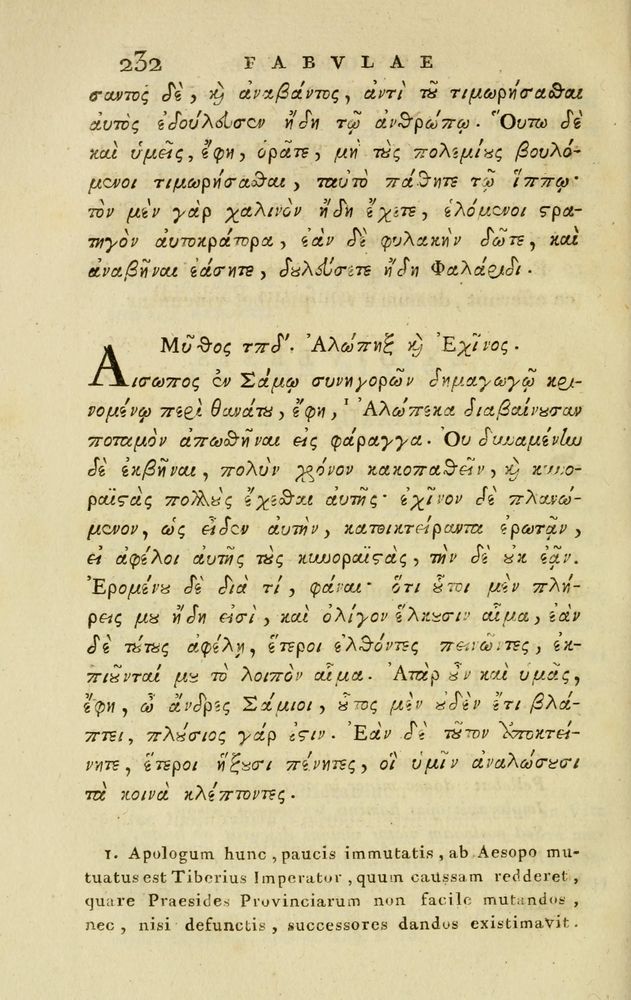 232 FABVLAE
σαντος δὲ, ϗ̀ ἀναβάντος, ἀντὶ τȣ̃ τιμωρήσαϑαι
αυτὸς ἐδούλευσεν ἤδη τῷ ἀνθρώπῳ. Ὅυτω δὲ
καὶ ὑμεῖς, ἔφη, ὁρᾶτε, μὴ τȣ̀ς πολεμίȣς βουλό-
μενοι τιμωρήσασθαι, ταυτὸ πάθητε τῷ ἵππῳ·
τὸν μὲν γὰρ χαλινὸν ἤδη ἔχετε, ἑλόμενοι ϛρα-
τηγὸν αυτοκράτορα, ἐὰν δὲ φυλακὴν δῶτε, καὶ
ἀναβῆναι ἐάσητε, δȣλεύσετε ἤδη Φαλάριδι.
Μῦθος τπδʹ. Ἀλώπηξ ϗ̀ Ἐχῖνος.
Αισωπος ἐν Σάμῳ συνηγορῶν δημαγωγῷ κρι-
νομένῳ περὶ θανάτȣ, ἔφη, 1 Ἀλώπεκα διαβαίνȣσαν
ποταμὸν ἀπωθῆναι εἰς φάραγγα. Ὀυ δυναμένην
δὲ ἐκβῆναι, πολὺν χρόνον κακοπαθεῖν, ϗ̀ κυνο-
ραϊϛὰς πολλȣ̀ς ἔχεσθαι αυτῆς· ἐχῖνον δὲ πλανώ-
μενον, ὡς εἶδεν αυτὴν, κατοικτείραντα ἐρωτᾶν,
εἰ ἀφέλοι αυτῆς τȣ̀ς κυνοραϊϛὰς, τὴν δὲ ȣκ ἐᾷν.
Ἐρομένȣ δὲ διὰ τί, φάναι· ὅτι ȣ̃τοι μὲν πλή-
ρεις μȣ ἤδη εἰσὶ, καὶ ὀλίγον ἕλκȣσιν αἷμα, ἐὰν
δὲ τȣ́τȣς ἀφέλῃ, ἕτεροι ἐλθόντες πεινῶντες, ἐκ-
πιȣ̃νταί μȣ τὸ λοιπὸν αἷμα. Ἀτὰρ ȣ̃ν καὶ υμᾶς,
ἔφη, ὦ ἄνδρες Σάμιοι, ȣ̃τος μὲν ȣδὲν ἔτι βλά-
πτει, πλȣ́σιος γάρ ἐϛιν. Ἐὰν δὲ τȣ̃τον ἀποκτεί-
νητε, ἕτεροι ἥξȣσι πένητες, οἳ ὑμῖν ἀναλώσȣσι
τὰ κοινὰ κλέπτοντες.
1. Apologum hunc, paucis immutatis, ab Aesopo mu-
tuatus est Tiberius Imperator, quum caussam redderet,
quare Praesides Provinciarum non facile mutandos,
nec, nisi defunctis, successores dandos existimaVit.